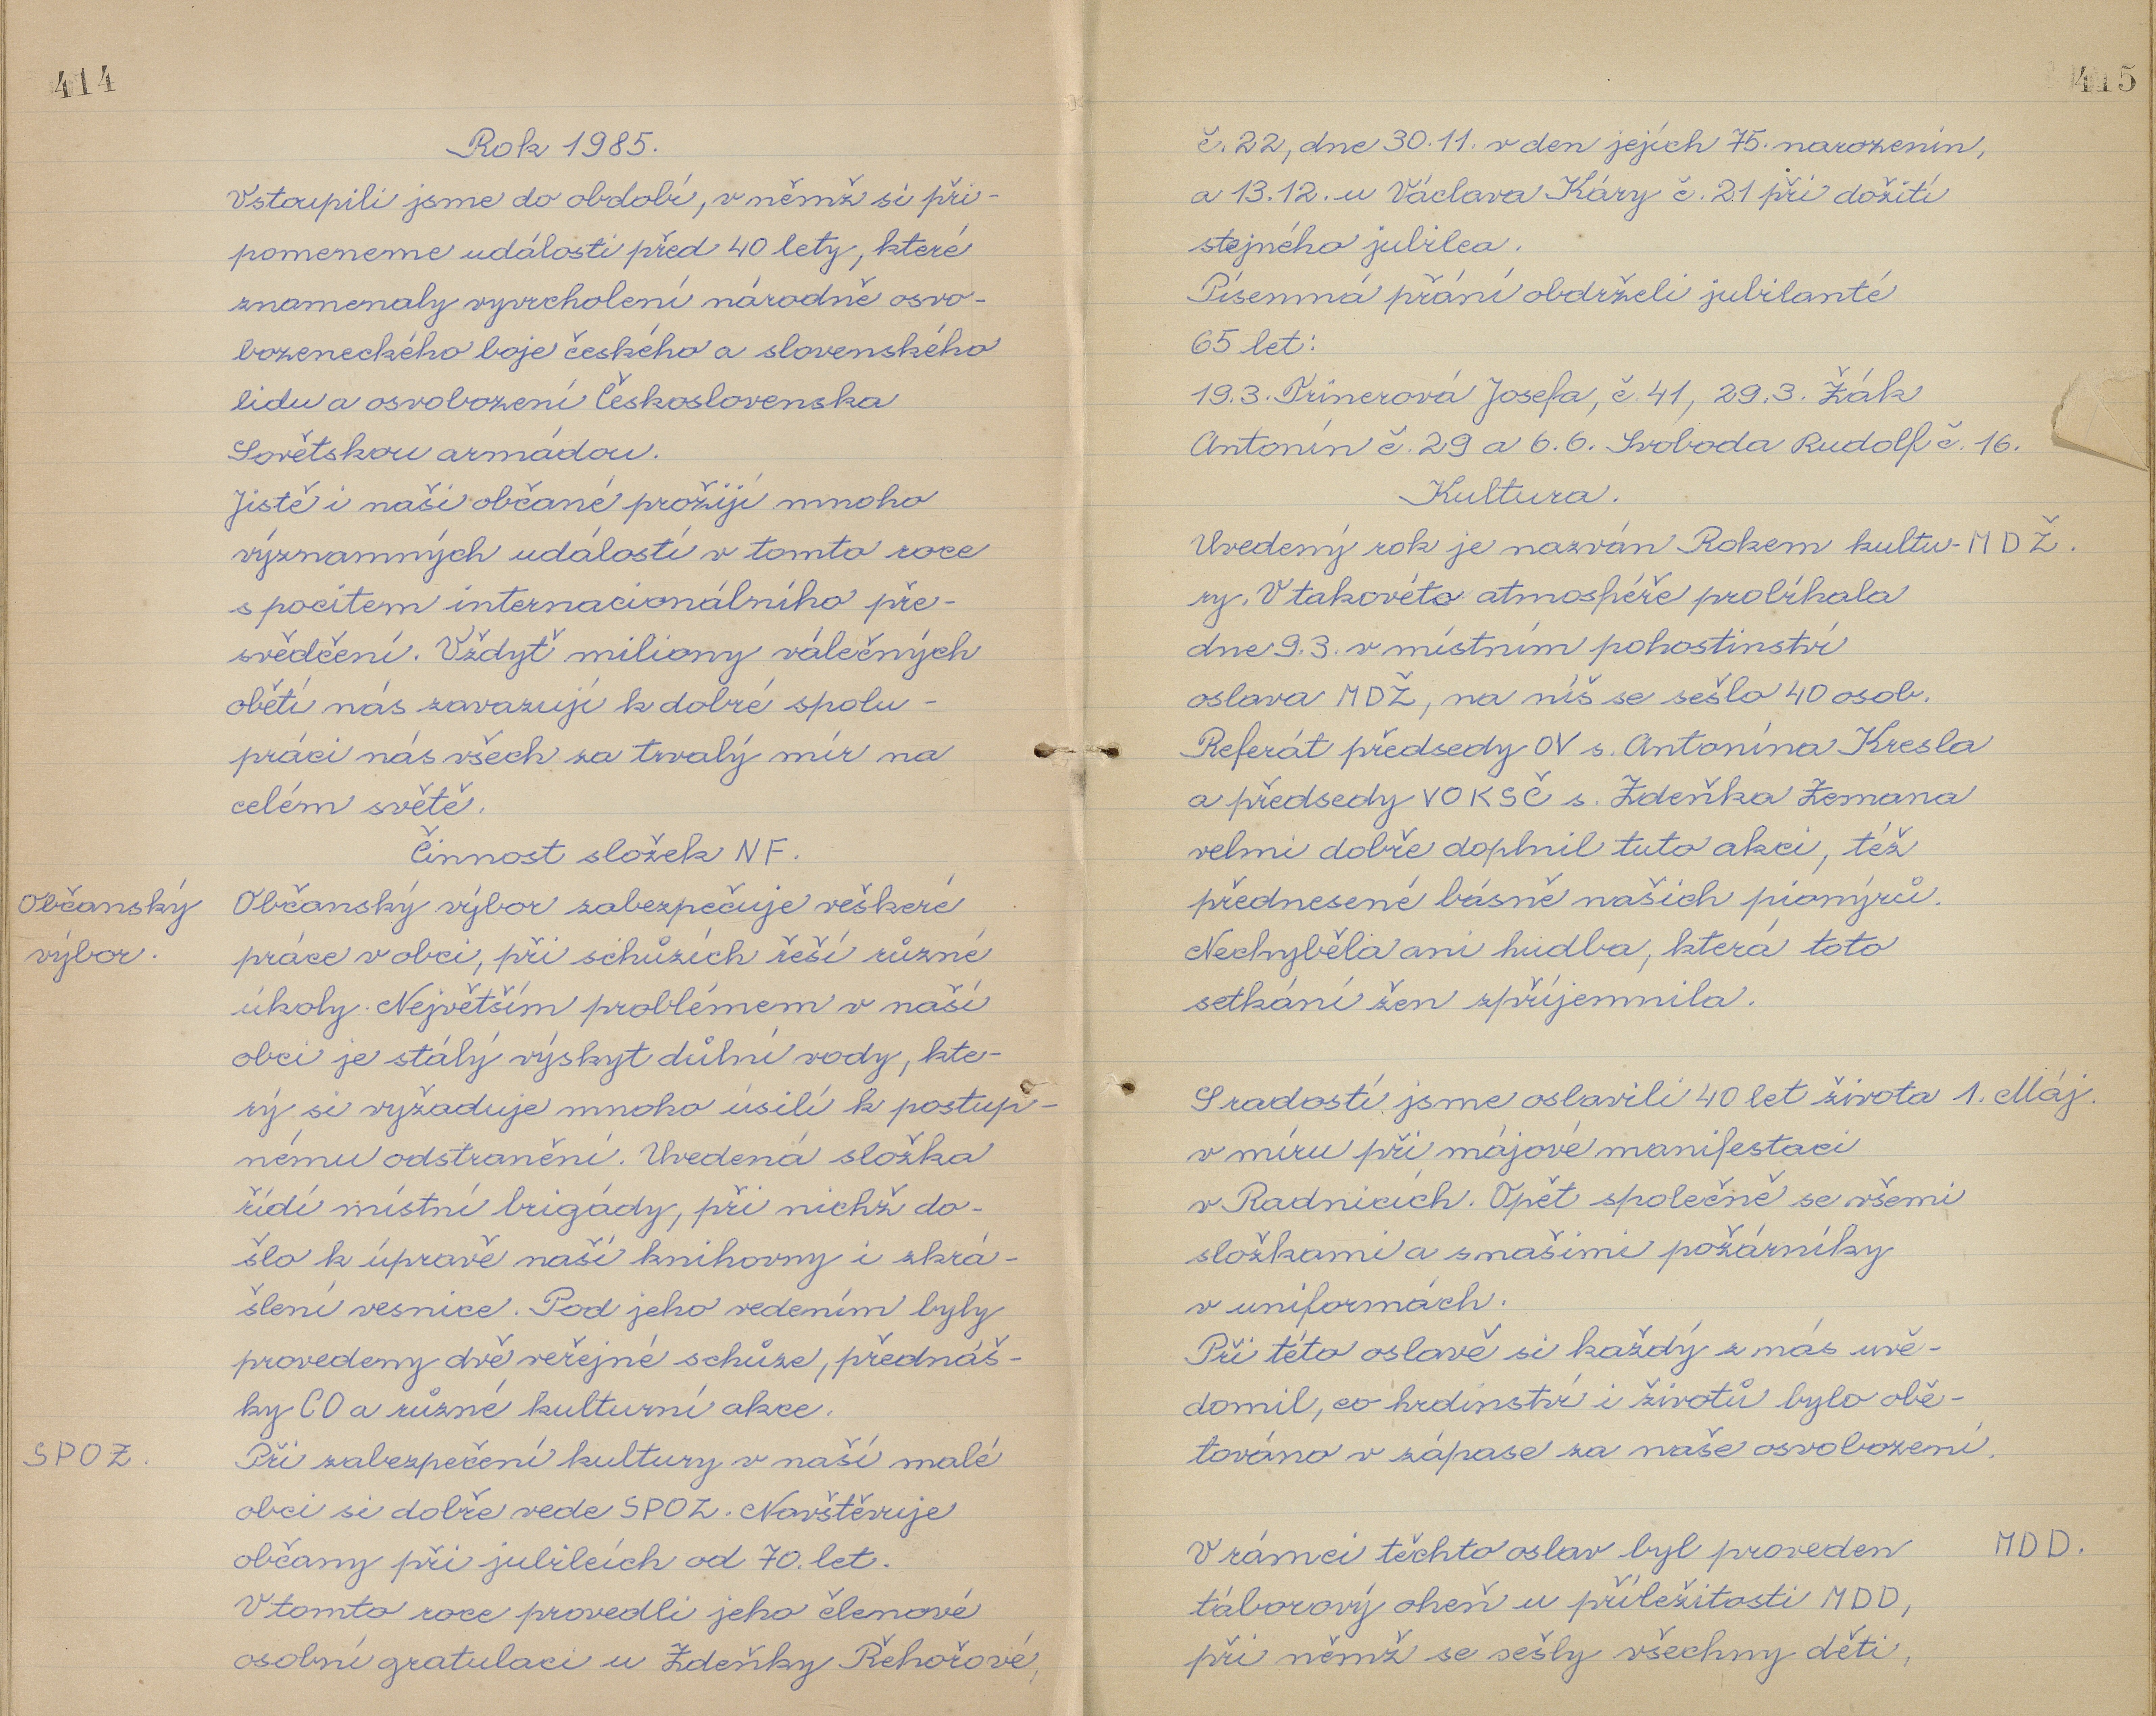 414
Rok 1985.
Vstoupili jsme do období, v němž si při-
pomeneme události před 40 lety, které
znamenaly vyvrcholení národně osvo-
bozeneckého boje českého a slovenského
lidu a osvobození Československa
Sovětskou armádou.
Jistě i naši občané prožijí mnoho
významných událostí v tomto roce
s pocitem internacionálního pře-
svědčení. Vždyť miliony válečných
obětí nás zavazují k dobré spolu-
práci nás všech za trvalý mír na
celém světě.
Činnost složek NF.
Občanský
výbor.
Občanský výbor zabezpečuje veškeré
práce v obci, při schůzích řeší různé
úkoly. Největším problémem v naší
obci je stálý výskyt důlní vody, kte-
rý si vyžaduje mnoho úsilí k postup-
nému odstranění. Uvedená složka
řídí místní brigády, při nichž do-
šlo k úpravě naší knihovny i zkrá-
šlení vesnice. Pod jeho vedením byly
provedeny dvě veřejné schůze, přednáš-
ky CO a různé kulturní akce.
SPOZ.
Při zabezpečení kultury v naší malé
obci si dobře vede SPOZ. Navštěvuje
občany při jubileích od 70. let.
V tomto roce provedli jeho členové
osobní gratulaci u Zdeňky Řehořové,
415
č. 22, dne 30.11. v den jejích 75. narozenin,
a 13.12. u Václava Káry č. 21 při dožití
stejného jubilea.
Písemná přání obdrželi jubilanté
65 let:
19.3. Trinerová Josefa, č. 41, 29.3. Žák
Antonín č. 29 a 6.6. Svoboda Rudolf č. 16.
Kultura.
Uvedený rok je nazván Rokem kultu- MDŽ.
ry. V takovéto atmosféře probíhala
dne 9.3. v místním pohostinství
oslava MDŽ, na níš se sešlo 40 osob.
Referát předsedy OV s. Antonína Kresla
a předsedy VOKSČ s. Zdeňka Zemana
velmi dobře doplnil tuto akci, též
přednesené básně našich pionýrů.
Nechyběla ani hudba, která toto
setkání žen zpříjemnila.
S radostí jsme oslavili 40 let života 1. Máj.
v míru při májové manifestaci
v Radnicích. Opět společně se všemi
složkami a s našimi požárníky
v uniformách.
Při této oslavě si každý z nás uvě-
domil, co hrdinství i životů bylo obě-
továno v zápase za naše osvobození.
V rámci těchto oslav byl proveden MDD.
táborový oheň u příležitosti MDD,
při němž se sešly všechny děti,